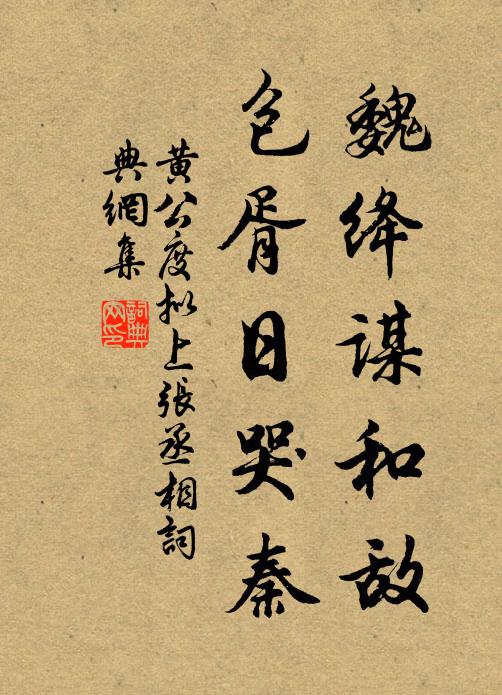 魏绛谋和敌
包胥日哭秦
黄公度拟上张丞相词
典網集
詞典網印